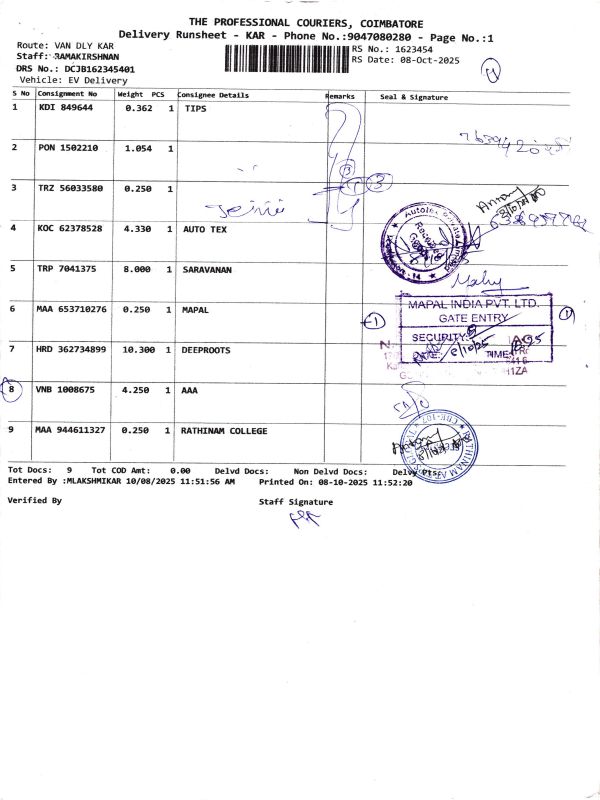 THE PROFESSIONAL COURIERS, COIMBATORE
Delivery Runsheet - KAR - Phone No.:9047080280 - Page No.:1
Route: VAN DLY KAR
RS No.: 1623454
Staff: RAMAKIRSHNAN
RS Date: 08-Oct-2025
DRS No.: DCJB162345401
Vehicle: EV Delivery
S No Consignment No Weight PCS Consignee Details Remarks Seal & Signature
1 KDI 849644 0.362 1 TIPS
2 PON 1502210 1.054 1
3 TRZ 56033580 0.250 1
4 KOC 62378528 4.330 1 AUTO TEX
5 TRP 7041375 8.000 1 SARAVANAN
6 MAA 653710276 0.250 1 MAPAL
MAPAL INDIA PVT. LTD.
GATE ENTRY
SECURITY:
DATE: 8/10/25 TIME:
7 HRD 362734899 10.300 1 DEEPROOTS
8 VNB 1008675 4.250 1 AAA
9 MAA 944611327 0.250 1 RATHINAM COLLEGE
Tot Docs: 9 Tot COD Amt: 0.00 Delvd Docs: Non Delvd Docs: Delvy Pts:
Entered By :MLAKSHMIKAR 10/08/2025 11:51:56 AM Printed On: 08-10-2025 11:52:20
Verified By Staff Signature